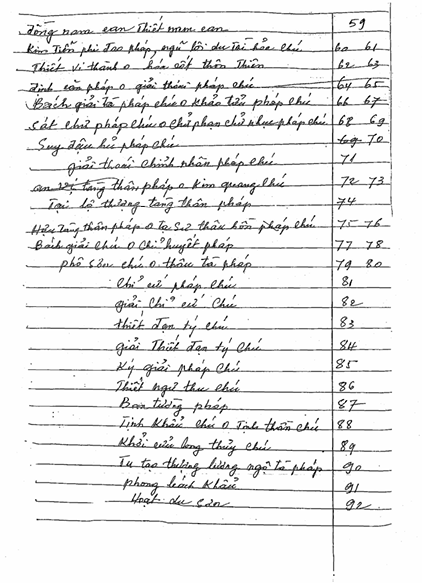 đồng nam can Thiết nam can 59
Kim Tiền phi đao pháp, ngũ lôi du Tài hỏa chú 60 61
Thiết vi thành o hóa cốt thôn Thiên 62 63
định căn pháp o giải thâu pháp chú 64 65
Bách giải tà pháp chú o Khảo tẩu pháp chú 66 67
Sát chư pháp chú o chỉ phạn chữ nhục pháp chú 68 69
Suy đậu hủ pháp chú 70
giải thoái Chỉnh nhân pháp chú 71
tàng thân pháp o Kim quang chú 72 73
Tại lộ thượng tàng thân pháp 74
tàng thân pháp o Tổ Sư thâu hồn pháp chú 75 76
Bách giải chú o Chỉ huyết pháp 77 78
phô sơn chú o thâu tà pháp 79 80
Chỉ cứ pháp chú 81
giải Chỉ cứ chú 82
thiết đạn tý chú 83
giải Thiết đạn tý chú 84
Ký giải pháp chú 85
Thiết ngư thu chú 86
Ban tường pháp 87
Tịnh Khẩu chú o Tịnh thân chú 88
Khởi cửu long thủy chú 89
Tu tạo thượng lương ngộ tà pháp 90
phong bách khẩu 91
Hoạt du sơn 92